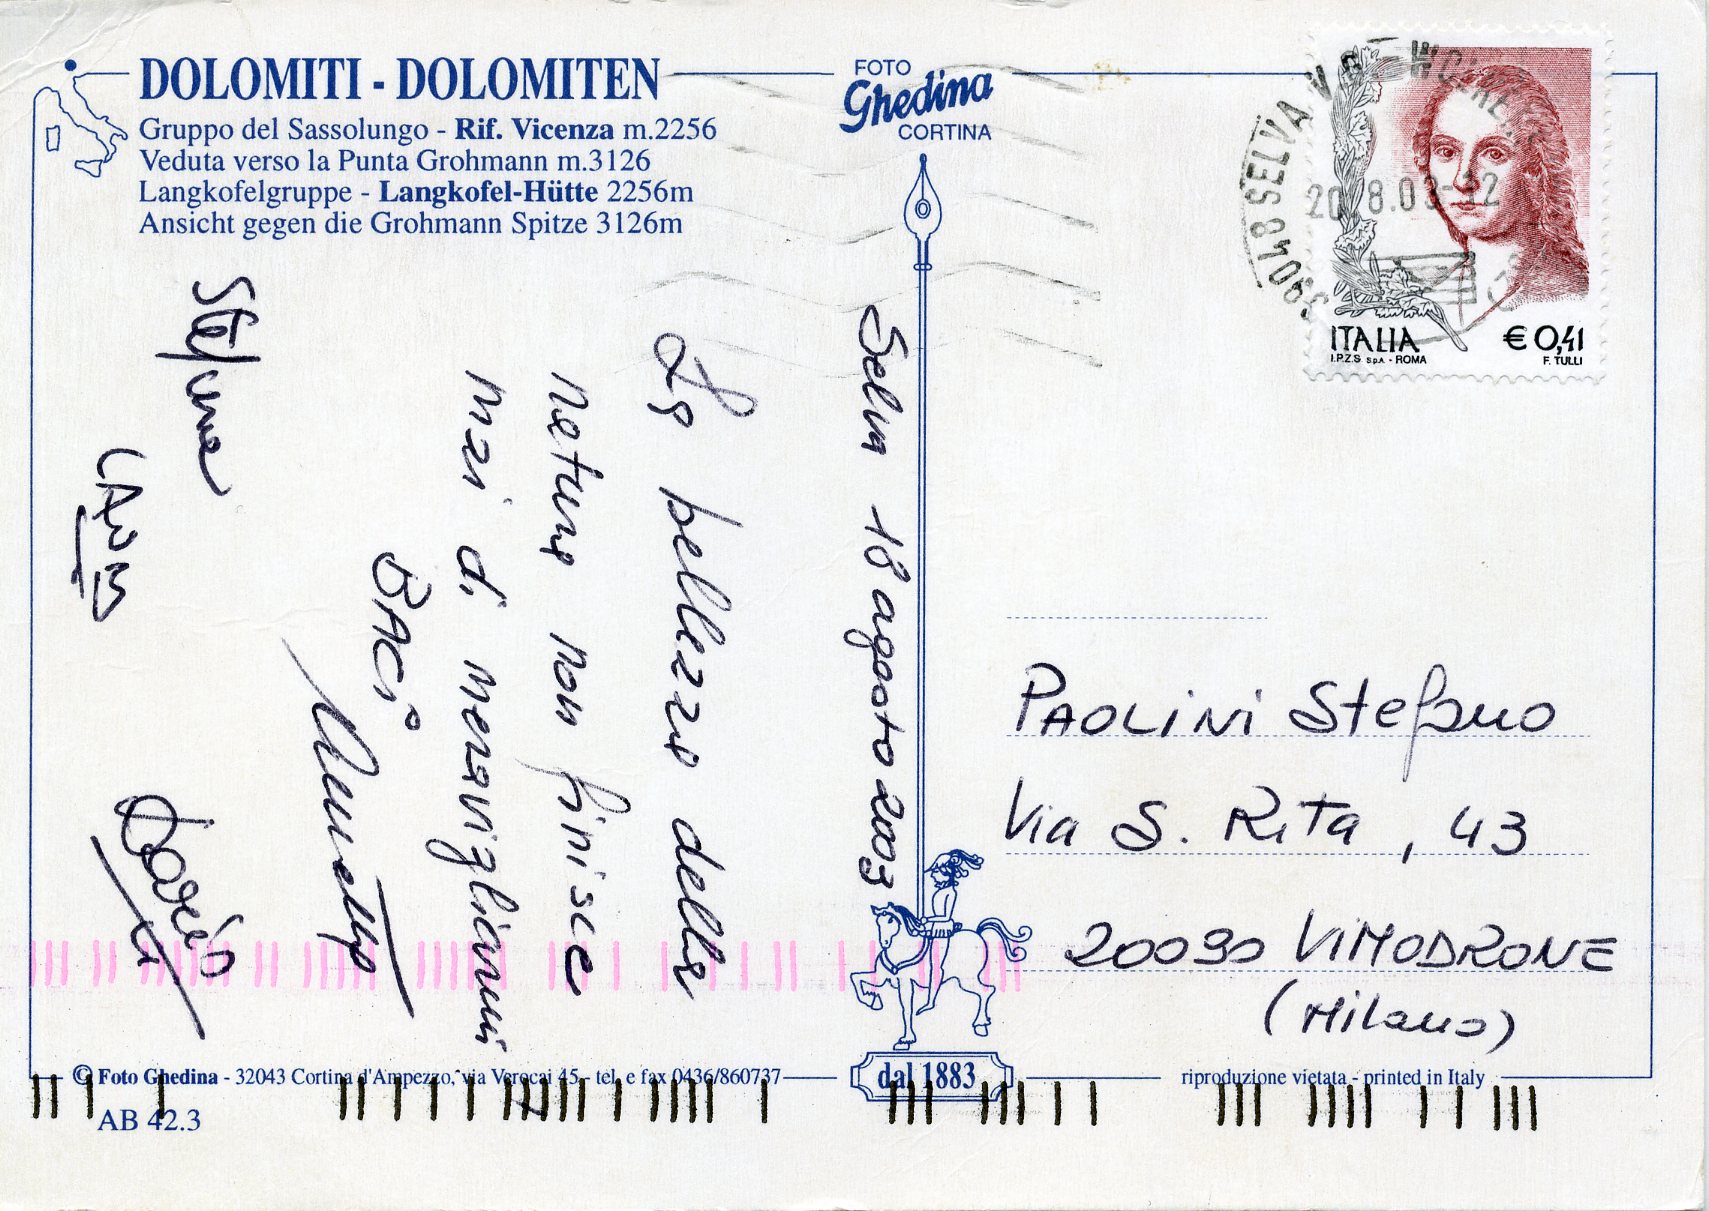 DOLOMITI - DOLOMITEN
Gruppo del Sassolungo - Rif. Vicenza m.2256
Veduta verso la Punta Grohmann m.3126
Langkofelgruppe - Langkofel-Hütte 2256m
Ansicht gegen die Grohmann Spitze 3126m
FOTO
Ghedina
CORTINA
39048 SELVA V.G.
20.8.03-12
ITALIA
€ 0,41
I.P.Z.S. S.p.A. - ROMA
F. TULLI
Selva 18 agosto 2003
La bellezza della
natura non finisce
mai di meravigliarmi
BACi
Stefania
LAURA
PAOLINI Stefano
Via S. Rita, 43
20090 VIMODRONE
(Milano)
© Foto Ghedina - 32043 Cortina d'Ampezzo, via Verocai 45 - tel. e fax 0436/860737
dal 1883
riproduzione vietata - printed in Italy
AB 42.3